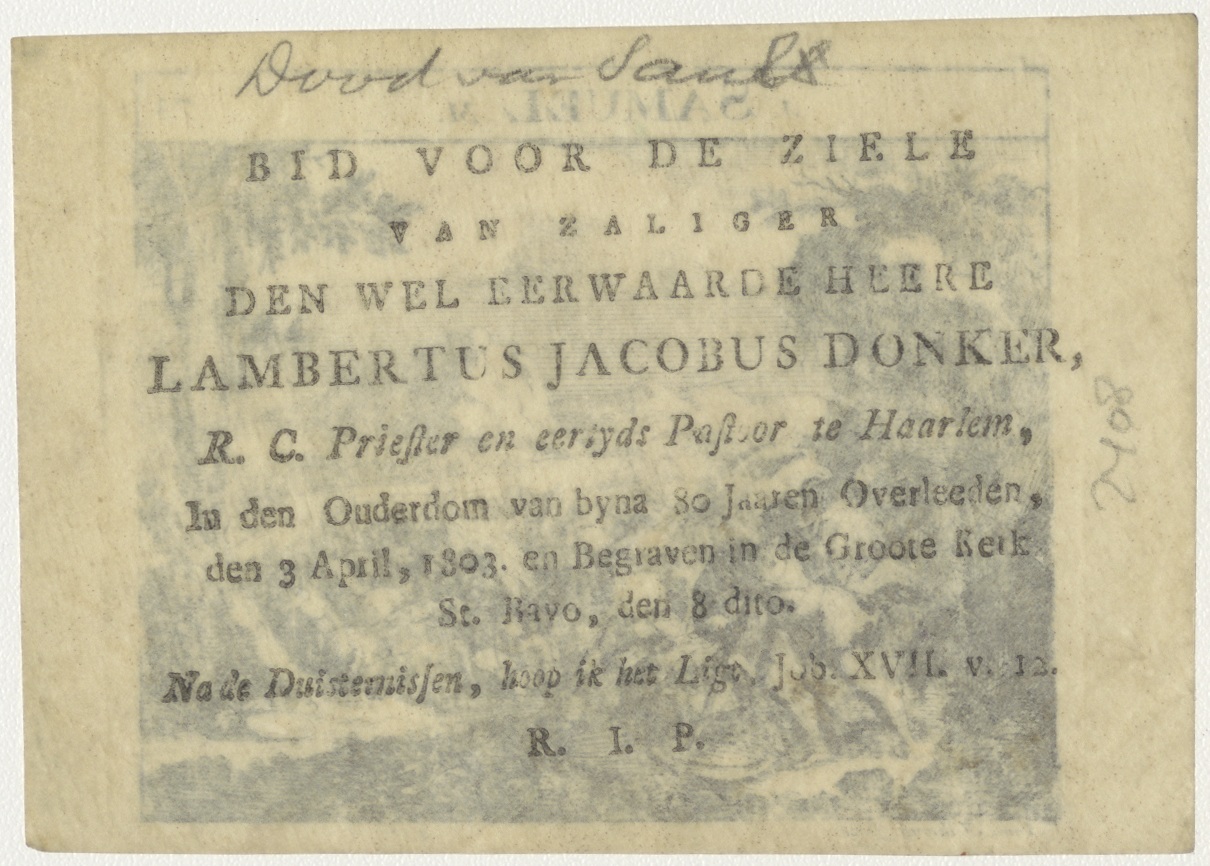 Dood van Saul
BID VOOR DE ZIELE
VAN ZALIGER
DEN WEL EERWAARDE HEERE
LAMBERTUS JACOBUS DONKER,
R. C. Prieſter en eertyds Paſtoor te Haarlem,
In den Ouderdom van byna 80 Jaaren Overleeden,
den 3 April, 1803. en Begraven in de Groote Kerk
St. Bavo, den 8 dito.
Na de Duisterniſſen, hoop ik het Ligt. Job. XVII. v. 12.
R. I. P.
2408